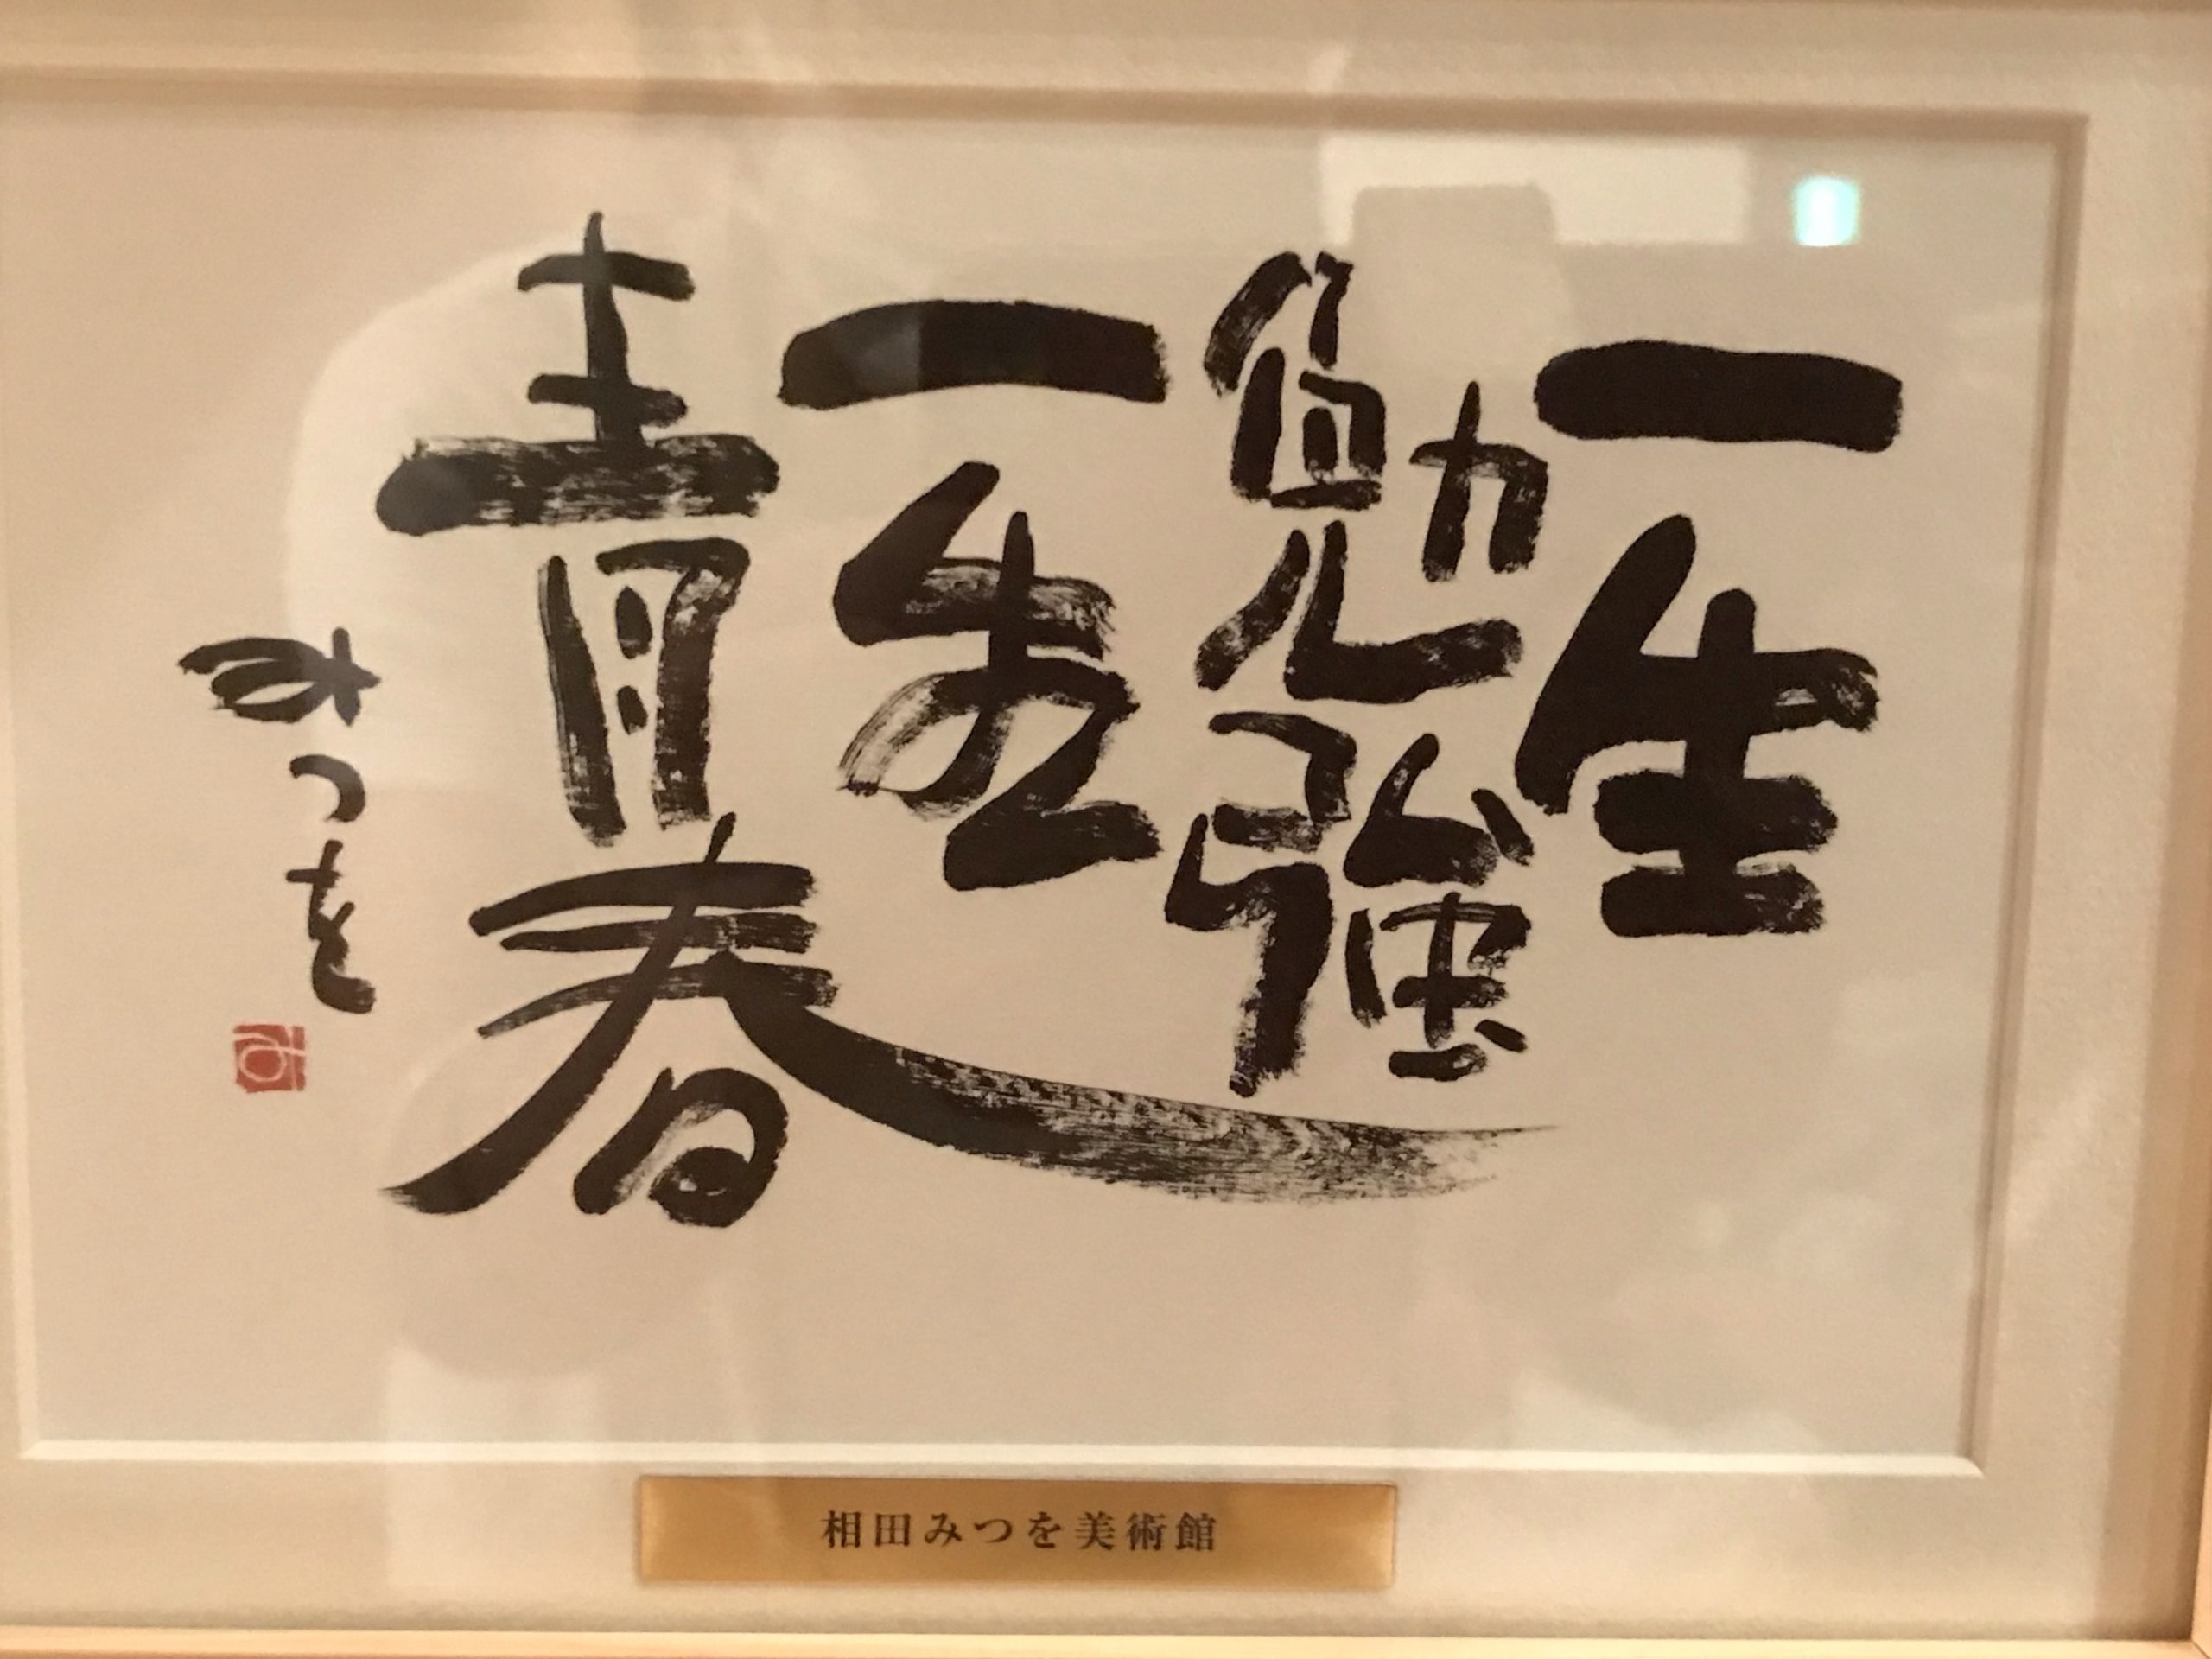 一生
勉強
一生
青春
みつを
相田みつを美術館